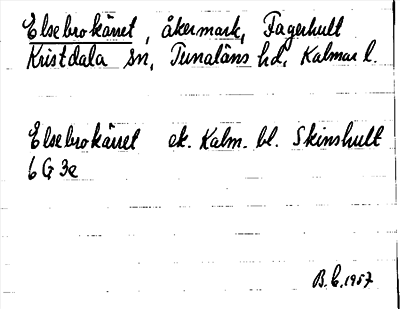 Elsebrokärret, åkermark, Fagerhult
Kristdala sn, Tunaläns hd, Kalmar l.
Elsebrokärret ek. Kalm. bl. Skinshult
6G 3e
B.C. 1957